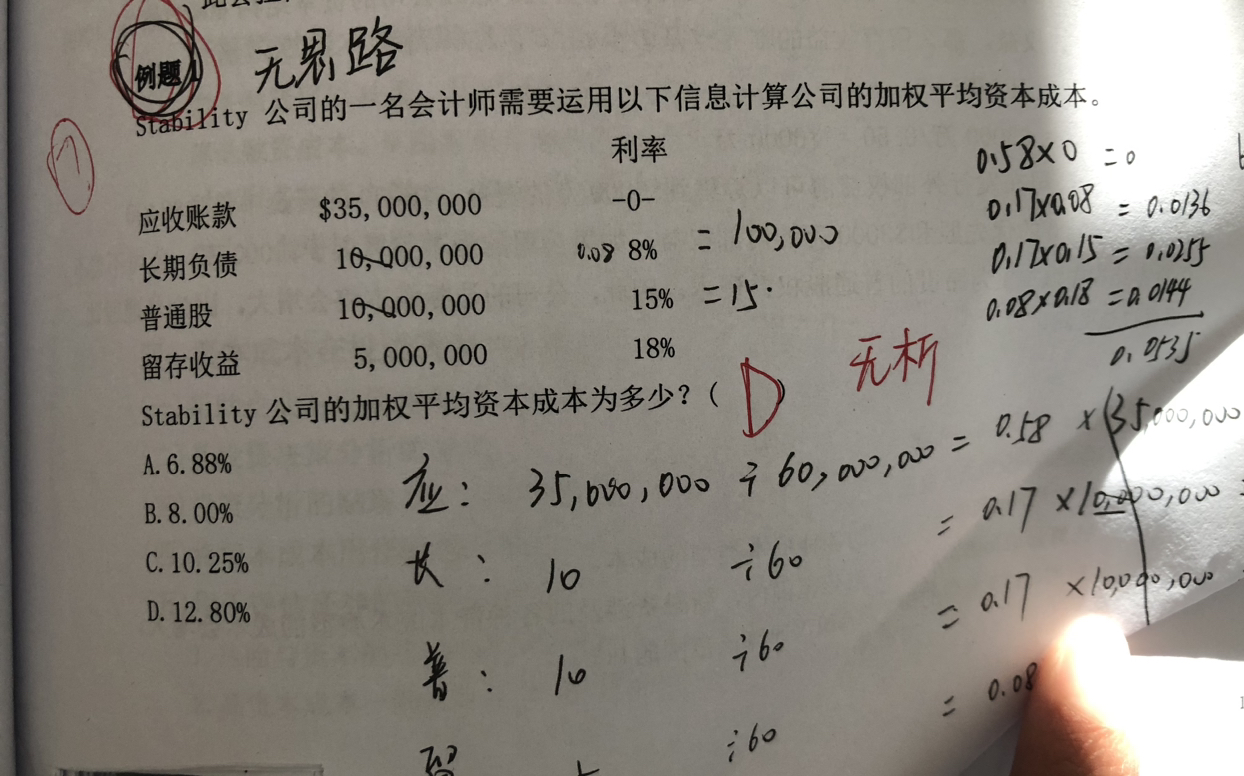 例题1 无思路
Stability 公司的一名会计师需要运用以下信息计算公司的加权平均资本成本。
利率
应收账款 $35,000,000 -0-
长期负债 10,000,000 0.08 8% = 100,000
普通股 10,000,000 15% =15.
留存收益 5,000,000 18%
Stability 公司的加权平均资本成本为多少?( D )
无析
A.6.88%
B.8.00%
C.10.25%
D.12.80%
0.58×0 =0
0.17×0.08 =0.0136
0.17×0.15 =0.0255
0.08×0.18 =0.0144
0.0535
应: 35,000,000 ÷ 60,000,000 = 0.58 ×(35,000,000
长: 10 ÷60 = 0.17 ×10,000,000 =
普: 10 ÷60 = 0.17 ×10,000,000
留 ÷60 = 0.08